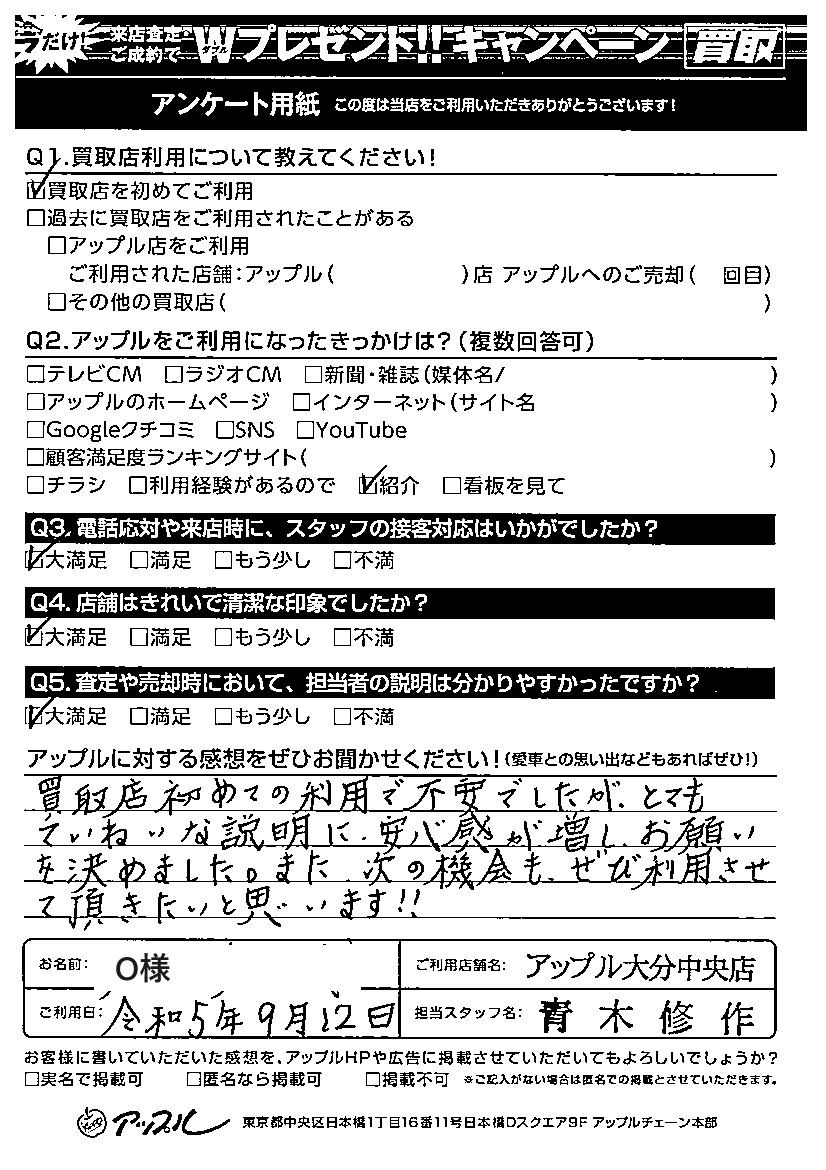 だけ!
来店査定・
ご成約で
Wプレゼント!!キャンペーン 買取
ダブル
アンケート用紙 この度は当店をご利用いただきありがとうございます!
Q1.買取店利用について教えてください!
☑買取店を初めてご利用
□過去に買取店をご利用されたことがある
□アップル店をご利用
ご利用された店舗:アップル( )店 アップルへのご売却( 回目)
□その他の買取店( )
Q2.アップルをご利用になったきっかけは?(複数回答可)
□テレビCM □ラジオCM □新聞・雑誌(媒体名/ )
□アップルのホームページ □インターネット(サイト名 )
□Googleクチコミ □SNS □YouTube
□顧客満足度ランキングサイト( )
□チラシ □利用経験があるので ☑紹介 □看板を見て
Q3.電話応対や来店時に、スタッフの接客対応はいかがでしたか?
☑大満足 □満足 □もう少し □不満
Q4.店舗はきれいで清潔な印象でしたか?
☑大満足 □満足 □もう少し □不満
Q5.査定や売却時において、担当者の説明は分かりやすかったですか?
☑大満足 □満足 □もう少し □不満
アップルに対する感想をぜひお聞かせください!(愛車との思い出などもあればぜひ!)
買取店初めての利用で不安でしたが、とても
ていねいな説明に、安心感が増し、お願い
を決めました。また、次の機会も、ぜひ利用させ
て頂きたいと思います!!
お名前: O様 ご利用店舗名: アップル大分中央店
ご利用日: 令和5年9月12日 担当スタッフ名: 青木修作
お客様に書いていただいた感想を、アップルHPや広告に掲載させていただいてもよろしいでしょうか?
□実名で掲載可 □匿名なら掲載可 □掲載不可 ※ご記入がない場合は匿名での掲載とさせていただきます。
アップル 東京都中央区日本橋1丁目16番11号日本橋Dスクエア9F アップルチェーン本部